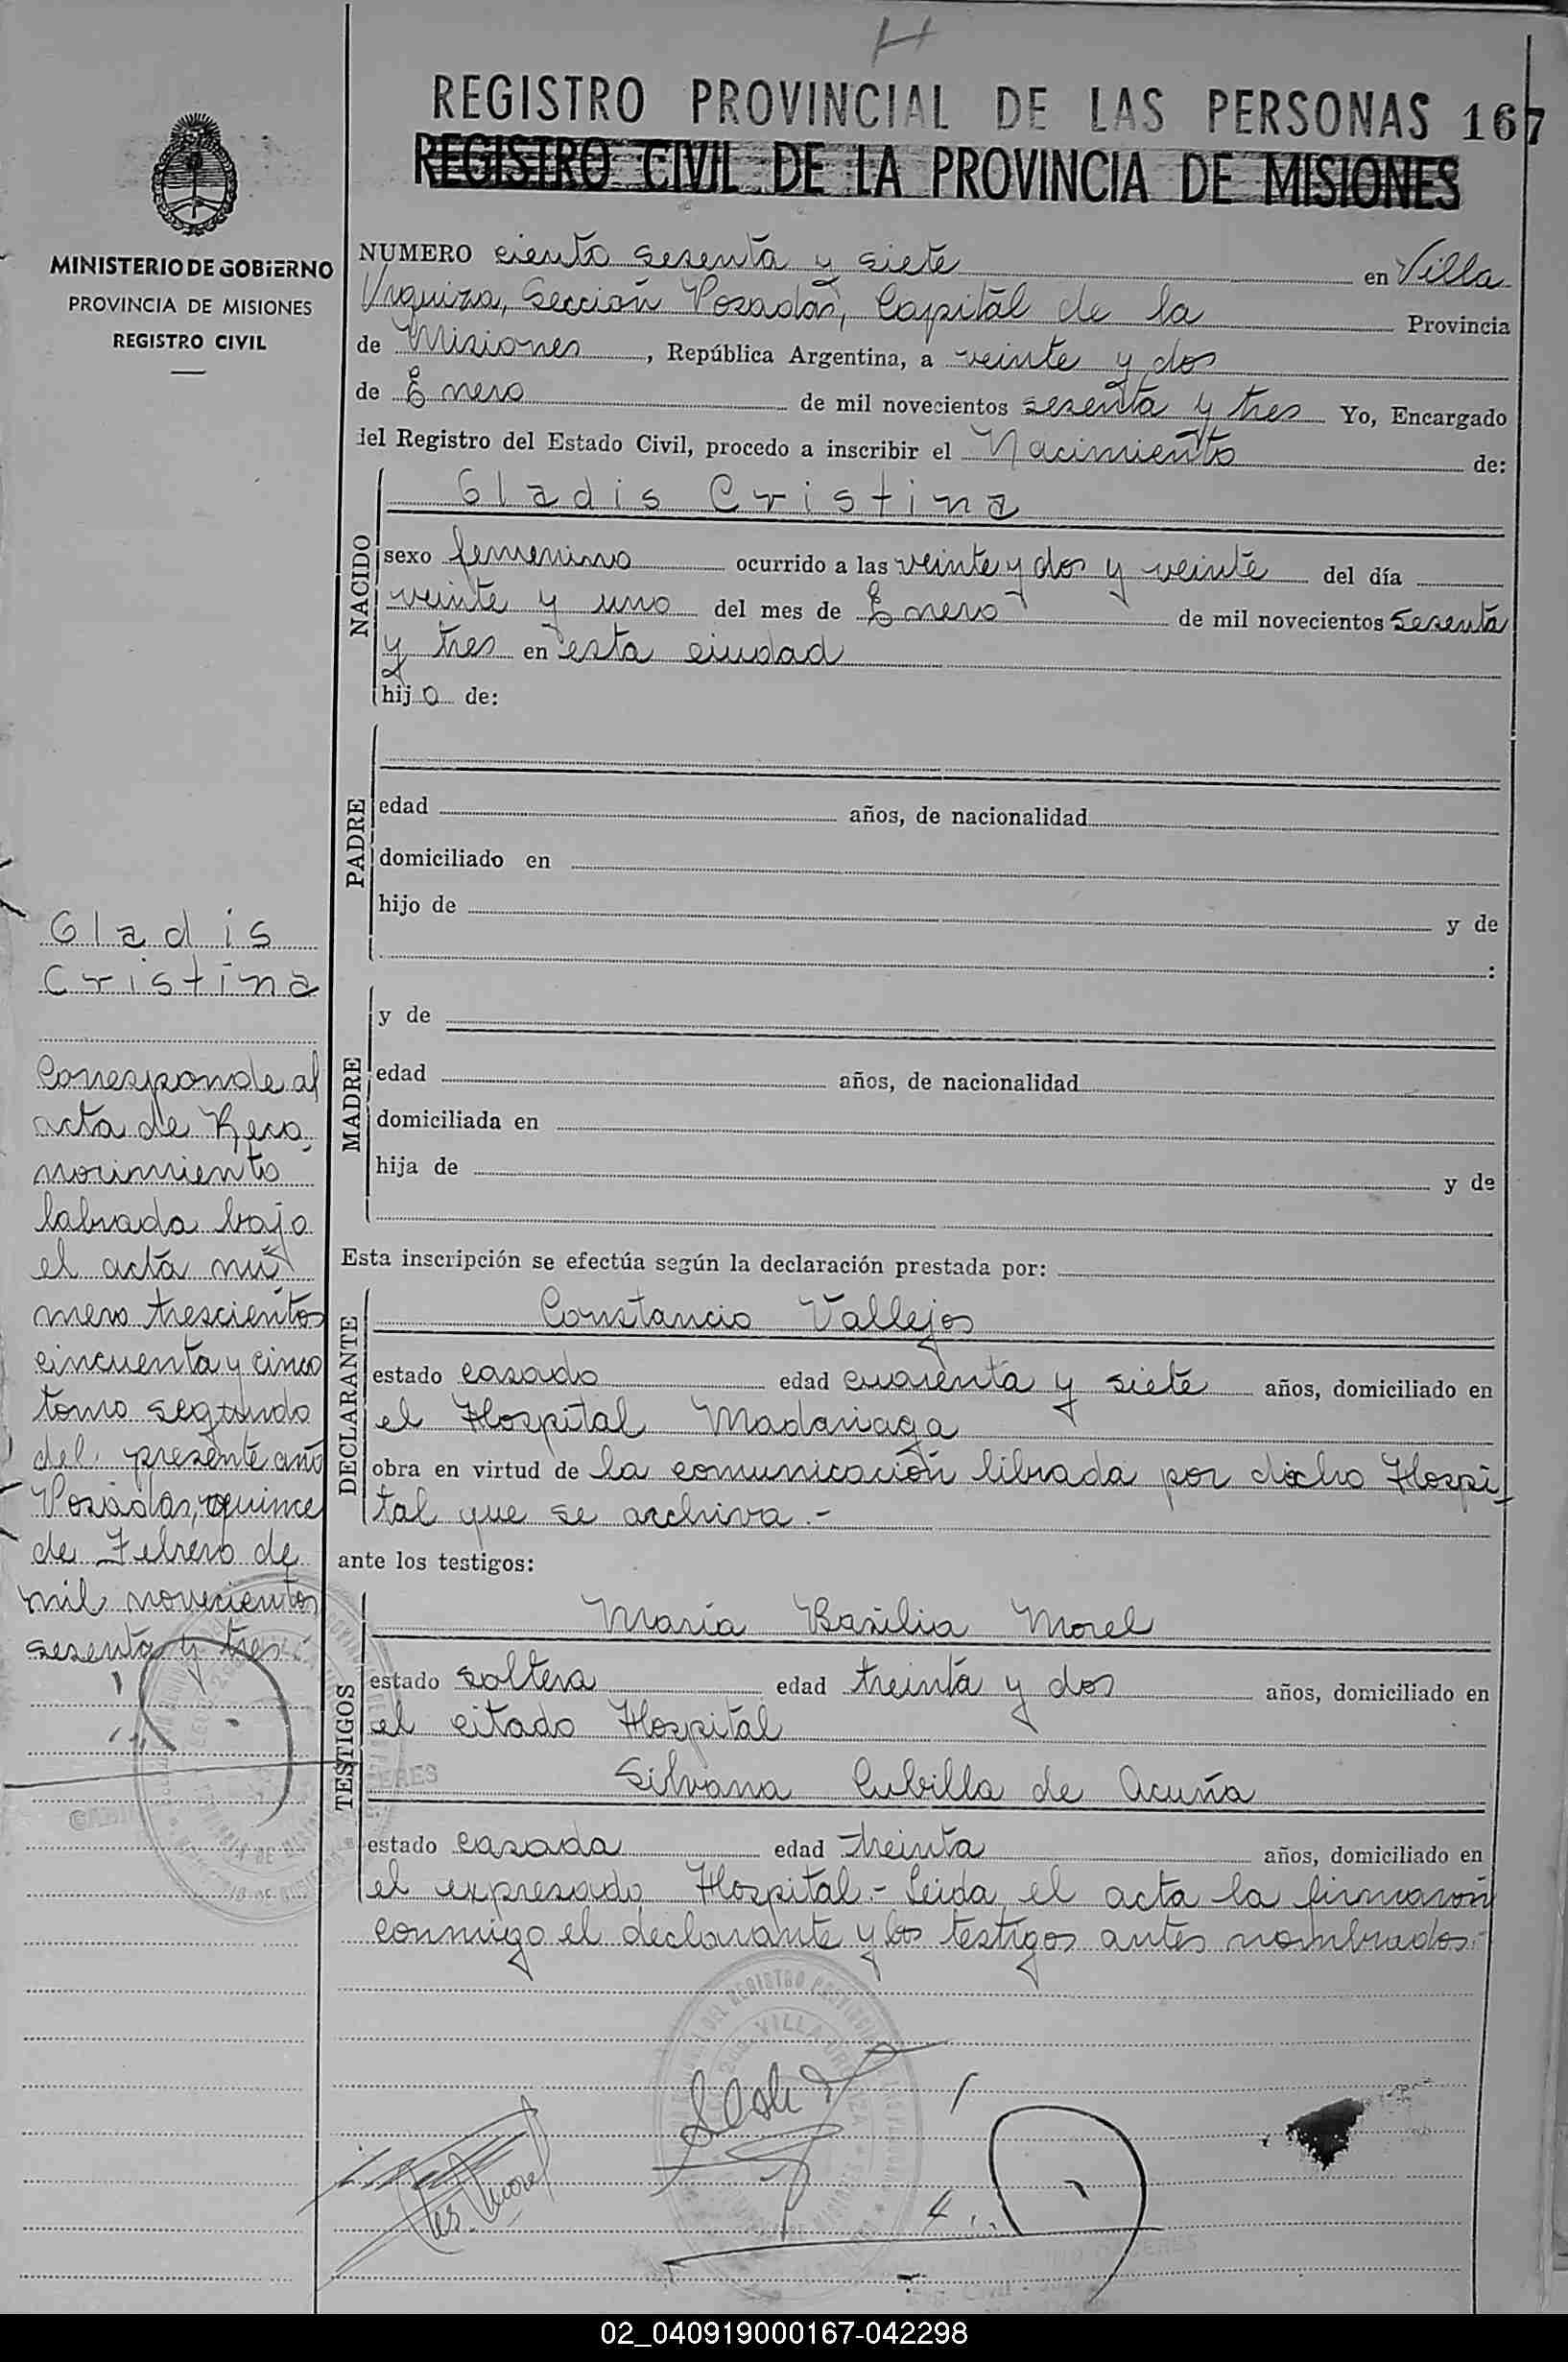 H
REGISTRO PROVINCIAL DE LAS PERSONAS 167
REGISTRO CIVIL DE LA PROVINCIA DE MISIONES
MINISTERIO DE GOBIERNO
PROVINCIA DE MISIONES
REGISTRO CIVIL
NUMERO ciento sesenta y siete en Villa
Urquiza, Sección Posadas, Capital de la Provincia
de Misiones, República Argentina, a veinte y dos
de Enero de mil novecientos sesenta y tres Yo, Encargado
del Registro del Estado Civil, procedo a inscribir el Nacimiento de:
NACIDO
Gladis Cristina
sexo femenino ocurrido a las veinte y dos y veinte del día
veinte y uno del mes de Enero de mil novecientos sesenta
y tres en esta ciudad
hija de:
PADRE
edad años, de nacionalidad
domiciliado en
hijo de y de
:
MADRE
y de
edad años, de nacionalidad
domiciliada en
hija de y de
Esta inscripción se efectúa según la declaración prestada por:
DECLARANTE
Constancio Vallejos
estado casado edad cuarenta y siete años, domiciliado en
el Hospital Madariaga
obra en virtud de la comunicación librada por dicho Hospi-
tal que se archiva.-
ante los testigos:
TESTIGOS
María Basilia Morel
estado soltera edad treinta y dos años, domiciliado en
el citado Hospital
Silvana Cubilla de Acuña
estado casada edad treinta años, domiciliado en
el expresado Hospital.- Leida el acta la firmaron
conmigo el declarante y los testigos antes nombrados.-
Gladis
Cristina
Corresponde al
acta de Reco-
nocimiento
labrada bajo
el acta nú
mero trescientos
cincuenta y cinco
tomo segundo
del presente año
Posadas, quince
de Febrero de
mil novecientos
sesenta y tres.-
VILLA URQUIZA
Morel
02_040919000167-042298